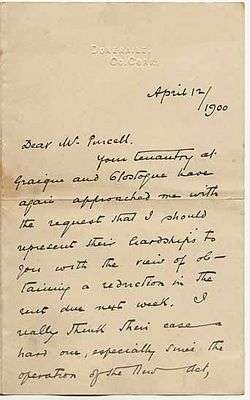 DONERAILE,
CO. CORK.
April 12/
1900
Dear Mr Purcell.
Your tenantry at
Graigue and Clotogue have
again approached me with
the request that I should
represent their hardships to
you with the view of ob-
taining a reduction in the
rent due next week. I
really think their case a
hard one, especially since the
operation of the New Act,